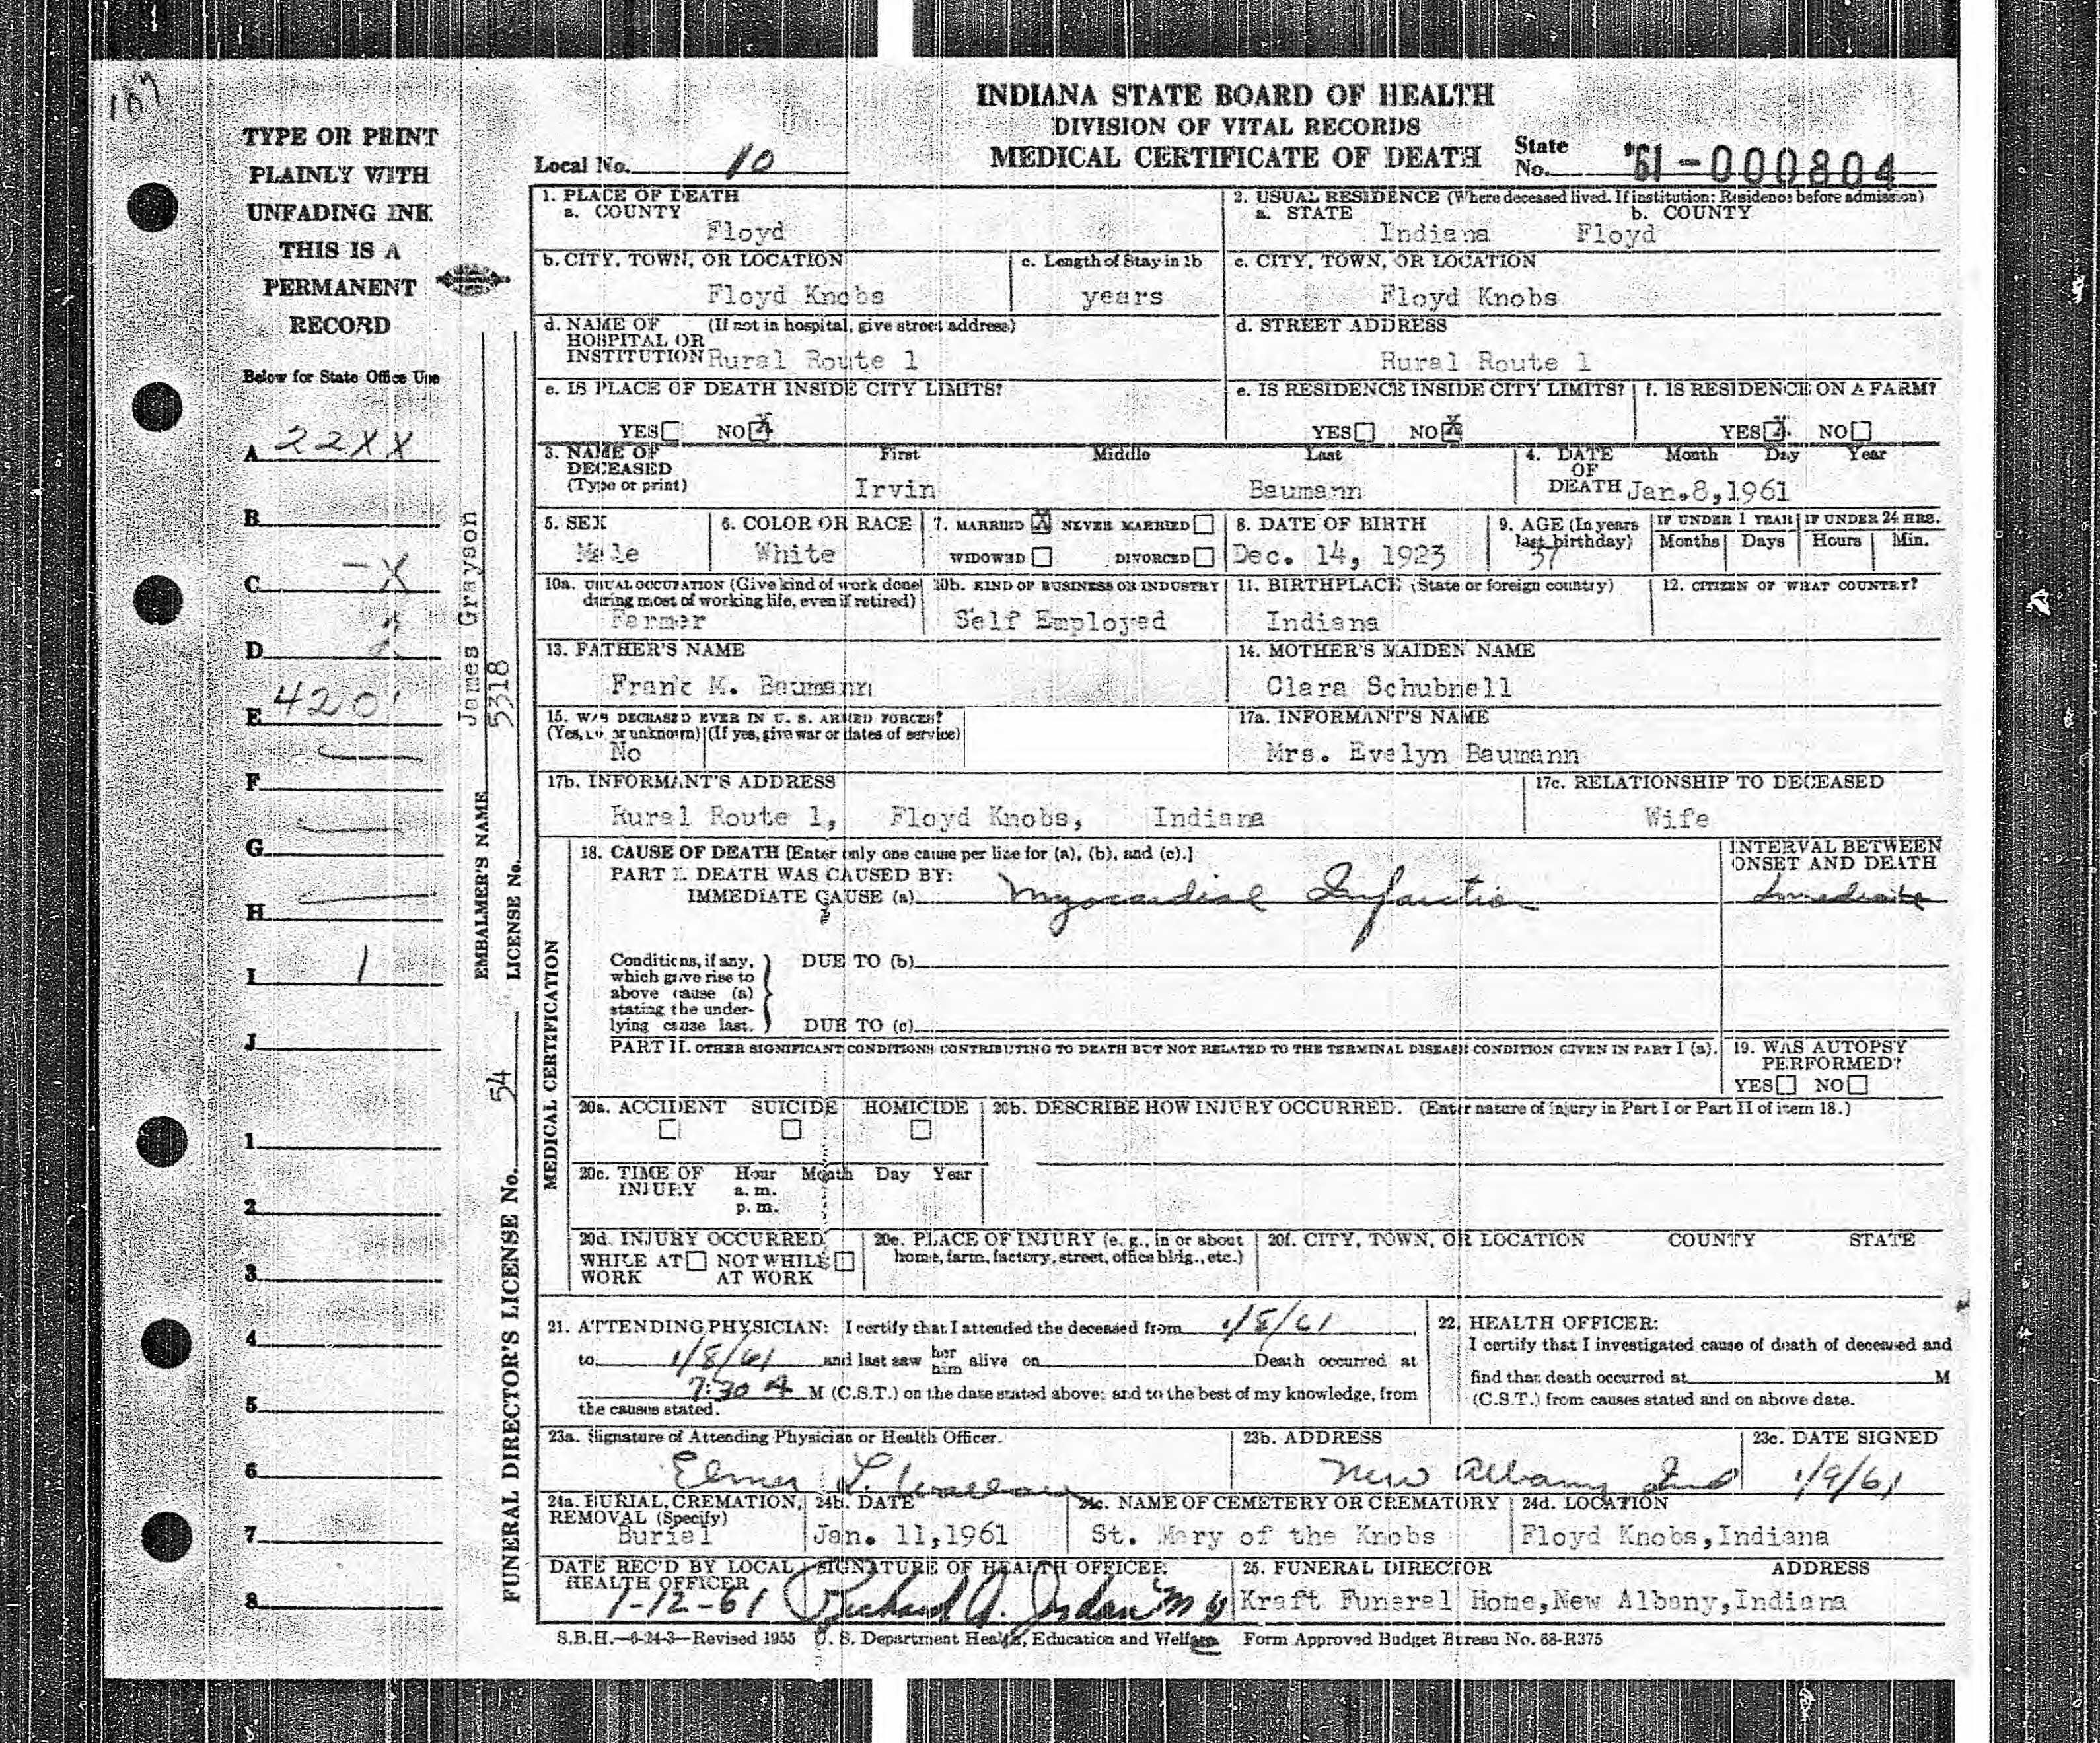 107
INDIANA STATE BOARD OF HEALTH
DIVISION OF VITAL RECORDS
MEDICAL CERTIFICATE OF DEATH
Local No. 10
State No. '61-000804
TYPE OR PRINT
PLAINLY WITH
UNFADING INK
THIS IS A
PERMANENT
RECORD
Below for State Office Use
A 22XX
B
C -X
D
E 4201
F
G
H
I 1
J
1
2
3
4
5
6
7
8
EMBALMER'S NAME James Grayson
LICENSE No. 5318
FUNERAL DIRECTOR'S LICENSE No. 54
1. PLACE OF DEATH
a. COUNTY
Floyd
2. USUAL RESIDENCE (Where deceased lived. If institution: Residence before admission)
a. STATE b. COUNTY
Indiana Floyd
b. CITY, TOWN, OR LOCATION
Floyd Knobs
c. Length of Stay in 1b
years
c. CITY, TOWN, OR LOCATION
Floyd Knobs
d. NAME OF (If not in hospital, give street address)
HOSPITAL OR
INSTITUTION Rural Route 1
d. STREET ADDRESS
Rural Route 1
e. IS PLACE OF DEATH INSIDE CITY LIMITS?
YES NO X
e. IS RESIDENCE INSIDE CITY LIMITS?
YES NO X
f. IS RESIDENCE ON A FARM?
YES X NO
3. NAME OF First Middle Last
DECEASED
(Type or print) Irvin Baumann
4. DATE Month Day Year
OF
DEATH Jan.8,1961
5. SEX
Male
6. COLOR OR RACE
White
7. MARRIED X NEVER MARRIED
WIDOWED DIVORCED
8. DATE OF BIRTH
Dec. 14, 1923
9. AGE (In years
last birthday)
37
IF UNDER 1 YEAR
Months Days
IF UNDER 24 HRS.
Hours Min.
10a. USUAL OCCUPATION (Give kind of work done
during most of working life, even if retired)
Farmer
10b. KIND OF BUSINESS OR INDUSTRY
Self Employed
11. BIRTHPLACE (State or foreign country)
Indiana
12. CITIZEN OF WHAT COUNTRY?
13. FATHER'S NAME
Frank M. Baumann
14. MOTHER'S MAIDEN NAME
Clara Schubnell
15. WAS DECEASED EVER IN U. S. ARMED FORCES?
(Yes, no, or unknown) (If yes, give war or dates of service)
No
17a. INFORMANT'S NAME
Mrs. Evelyn Baumann
17b. INFORMANT'S ADDRESS
Rural Route 1, Floyd Knobs, Indiana
17c. RELATIONSHIP TO DECEASED
Wife
MEDICAL CERTIFICATION
18. CAUSE OF DEATH [Enter only one cause per line for (a), (b), and (c).]
PART I. DEATH WAS CAUSED BY:
IMMEDIATE CAUSE (a) Myocardial Infarction
INTERVAL BETWEEN
ONSET AND DEATH
Immediate
Conditions, if any,
which gave rise to
above cause (a)
stating the under-
lying cause last.
DUE TO (b)
DUE TO (c)
PART II. OTHER SIGNIFICANT CONDITIONS CONTRIBUTING TO DEATH BUT NOT RELATED TO THE TERMINAL DISEASE CONDITION GIVEN IN PART I (a).
19. WAS AUTOPSY
PERFORMED?
YES NO
20a. ACCIDENT SUICIDE HOMICIDE
20b. DESCRIBE HOW INJURY OCCURRED. (Enter nature of injury in Part I or Part II of item 18.)
20c. TIME OF Hour Month Day Year
INJURY a. m.
p. m.
20d. INJURY OCCURRED
WHILE AT NOT WHILE
WORK AT WORK
20e. PLACE OF INJURY (e. g., in or about
home, farm, factory, street, office bldg., etc.)
20f. CITY, TOWN, OR LOCATION COUNTY STATE
21. ATTENDING PHYSICIAN: I certify that I attended the deceased from 1/8/61,
to 1/8/61 and last saw her him alive on Death occurred at
7:30 A M (C.S.T.) on the date stated above; and to the best of my knowledge, from
the causes stated.
22. HEALTH OFFICER:
I certify that I investigated cause of death of deceased and
find that death occurred at M
(C.S.T.) from causes stated and on above date.
23a. Signature of Attending Physician or Health Officer.
Elmer L.
23b. ADDRESS
New Albany Ind
23c. DATE SIGNED
1/9/61
24a. BURIAL, CREMATION,
REMOVAL (Specify)
Burial
24b. DATE
Jan. 11,1961
24c. NAME OF CEMETERY OR CREMATORY
St. Mary of the Knobs
24d. LOCATION
Floyd Knobs,Indiana
DATE REC'D BY LOCAL
HEALTH OFFICER
1-12-61
SIGNATURE OF HEALTH OFFICER
Richard A. Jordan M D
25. FUNERAL DIRECTOR ADDRESS
Kraft Funeral Home,New Albany,Indiana
S.B.H.—6-24-3—Revised 1955 U. S. Department Health, Education and Welfare Form Approved Budget Bureau No. 68-R375